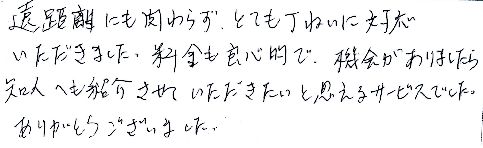 遠距離にも関わらず、とても丁ねいに対応
いただきました。料金も良心的で、機会がありましたら
知人へも紹介させていただきたいと思えるサービスでした。
ありがとうございました。